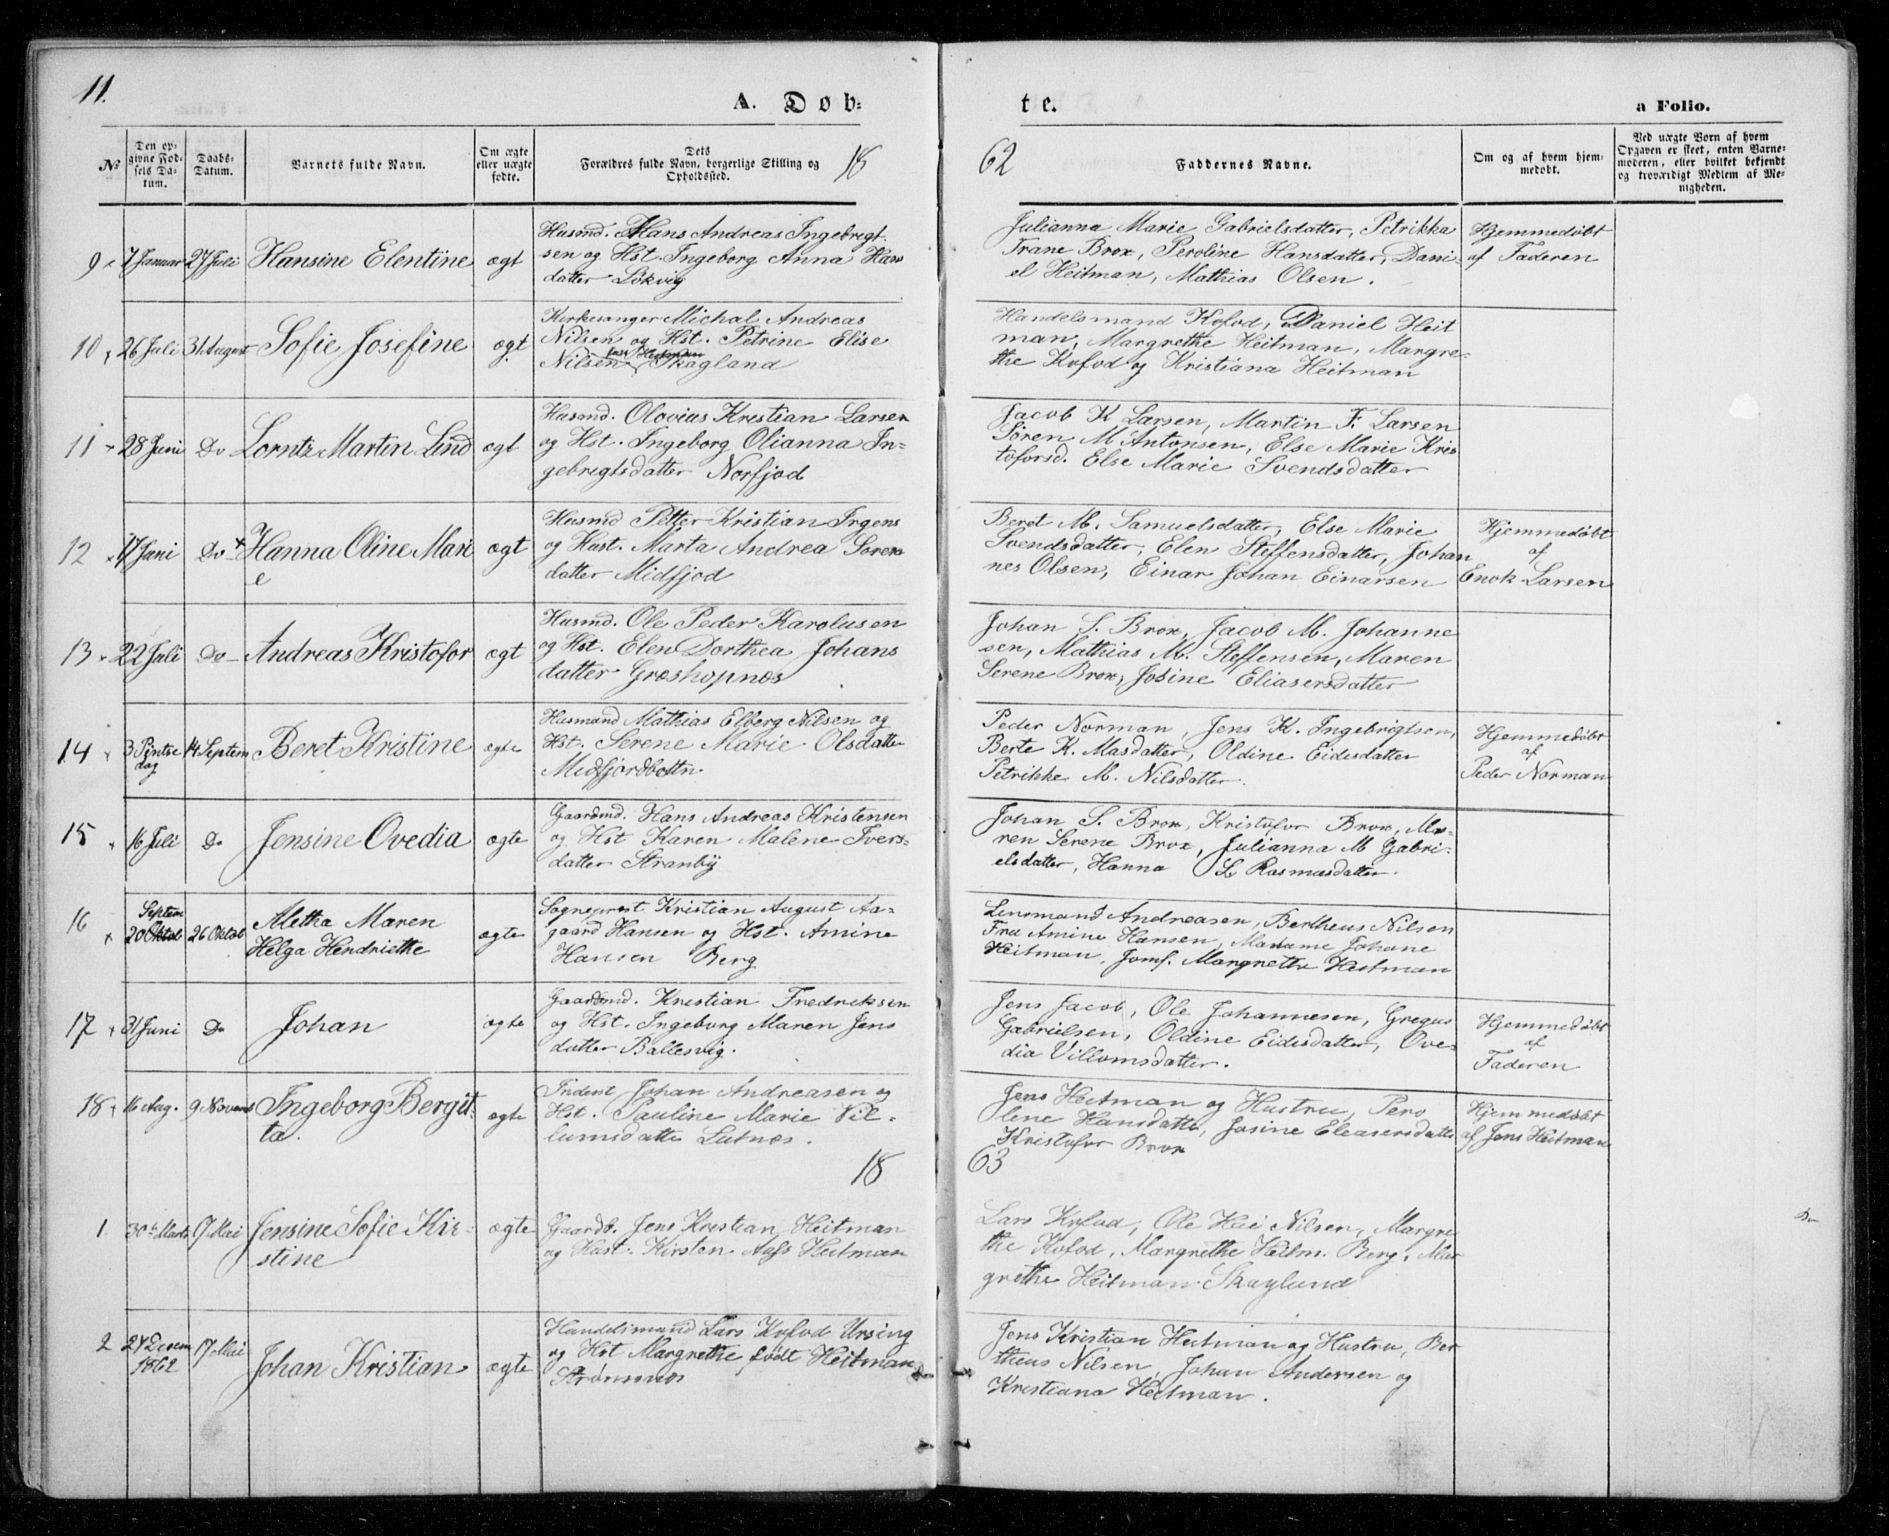 11.
A. Døb-
te.
a Folio.
No
Den op-
givne Fød-
sels Da-
tum.
Daabs-
Datum.
Barnets fulde Navn.
Om ægte
eller uægte
fødte.
Dets
Forældres fulde Navn, borgerlige Stilling og
Opholdssted.
18
62
Faddernes Navne.
Om og af hvem hjem-
medøbt.
Ved uægte Børn af hvem
Opgaven er skeet, enten Barne-
moderen, eller hvilket bekjendt
og troværdigt Medlem af Me-
nigheden.
9 7 Januar 27 Juli Hansine Elentine ægt
Husmd. Hans Andreas Ingebrigt-
sen og Hst. Ingeborg Anna Hans
datter Lökvig
Julianna Marie Gabrielsdatter, Petrikka
Trane Brox, Peroline Hansdatter, Dani-
el Heitman, Mathias Olsen.
Hjemmedøbt
af Faderen
10 26 Juli 31 August Sofie Josefine ægt
Kirkesanger Michal Andreas
Nilsen og Hst. Petrine Elise
Nilsen Skagland
Handelsmand Kofod, Daniel Heit
man, Margrethe Heitman, Margre-
the Kofod og Kristiana Heitman
11 28 Juni Do Lorntz Martin Lind ægt
Husmd. Olovius Kristian Larsen
og Hst. Ingeborg Olianna In-
gebrigtsdatter Norfjod
Jacob K Larsen, Martin F. Larsen
Søren M Antonsen, Else Marie Kris
toforsd. Else Marie Svendsdatter
12 17 Juni Do Hanna Oline Mari
e
ægt
Husmd Petter Kristian Irgens
og Hust. Marta Andrea Soren
datter Midfjod
Beret M. Samuelsdatter, Else Marie
Svendsdatter, Elen Steffensdatter, Johan
nes Olsen, Einar Johan Einarsen
Hjemmedøbt
af
Enok Larsen
13 22 Juli Do Andreas Kristofor ægt
Husmd. Ole Peder Karolusen
og Hst. Elen Dorthea Johans
datter Græshopnæs
Johan S. Brox, Jacob M. Johanne
sen, Mathias M. Steffensen, Maren
Serene Brox, Josine Eliasersdatter
14 3 Pintse
dag
14 Septem Beret Kristine ægte
Husmand Mathias Elberg Nilsen og
Hst. Serene Marie Olsdatter
Midfjordbottn
Peder Norman, Jens K. Ingebrigtsen,
Berte K. Masdatter, Oldine Eidesdatter
Petrikke M. Nilsdatter.
Hjemmedøbt
af
Peder Norman
15 16 Juli Do Jensine Ovedia ægte
Gaardmd. Hans Andreas Kristensen
og Hst Karen Malene Ivers-
datter Stranby
Johan S. Brox, Kristofor Brox, Ma-
ren Serene Brox, Julianna M Gabri-
elsdatter, Hanna L Rasmusdatter.
16 Septem
20 Oktob 26 Oktob
Aletha Maren
Helga Hendriethe
ægte
Sogneprest Kristian August Aa-
gaard Hansen og Hst. Amine
Hansen Berg
Lensmand Andreasen, Bertheus Nilsen
Fru Amine Hansen, Madame Johane
Heitman, Jomf. Margrethe Heitman
17 31 Juni Do Johan ægte
Gaardmd. Kristian Fredriksen
og Hst. Ingeborg Maren Jens
datter Ballesvig.
Jens Jacob, Ole Johannesen, Gregus
Gabrielsen, Oldine Eidisdatter, Ove-
dia Villomsdatter.
Hjemmedøbt
af
Faderen
18 16 Aug. 9 Novemb Ingeborg Bergit-
ta.
ægte
Inderst Johan Andreasen og
Hst. Pauline Marie Vil-
lumsdatter Lutnæs.
Jens Heitman og Hustru, Pero
line Hansdatter, Josine Eleasersdatter
Kristofor Brox
Hjemmedøbt
af Jens Heitman
18
63
1 30te Marts 17 Mai Jensine Sofie Kir-
stine
ægte
Gaardb. Jens Kristian Heitman
og Hust. Kirsten Aass Heitman
Lars Kofod, Ole Nilsen, Margre
the Kofod, Margrethe Heitm. Berg, Mar
grethe Heitman Skaglund
2 27 Decem
1862
17 Mai Johan Kristian ægte
Handelsmand Lars Kofod Ursing
og Hst Margrethe født Heitman
Strømsnæs
Jens Kristian Heitman og Hustru, Ber
theus Nilsen, Johan Andersen og
Kristiana Heitman.